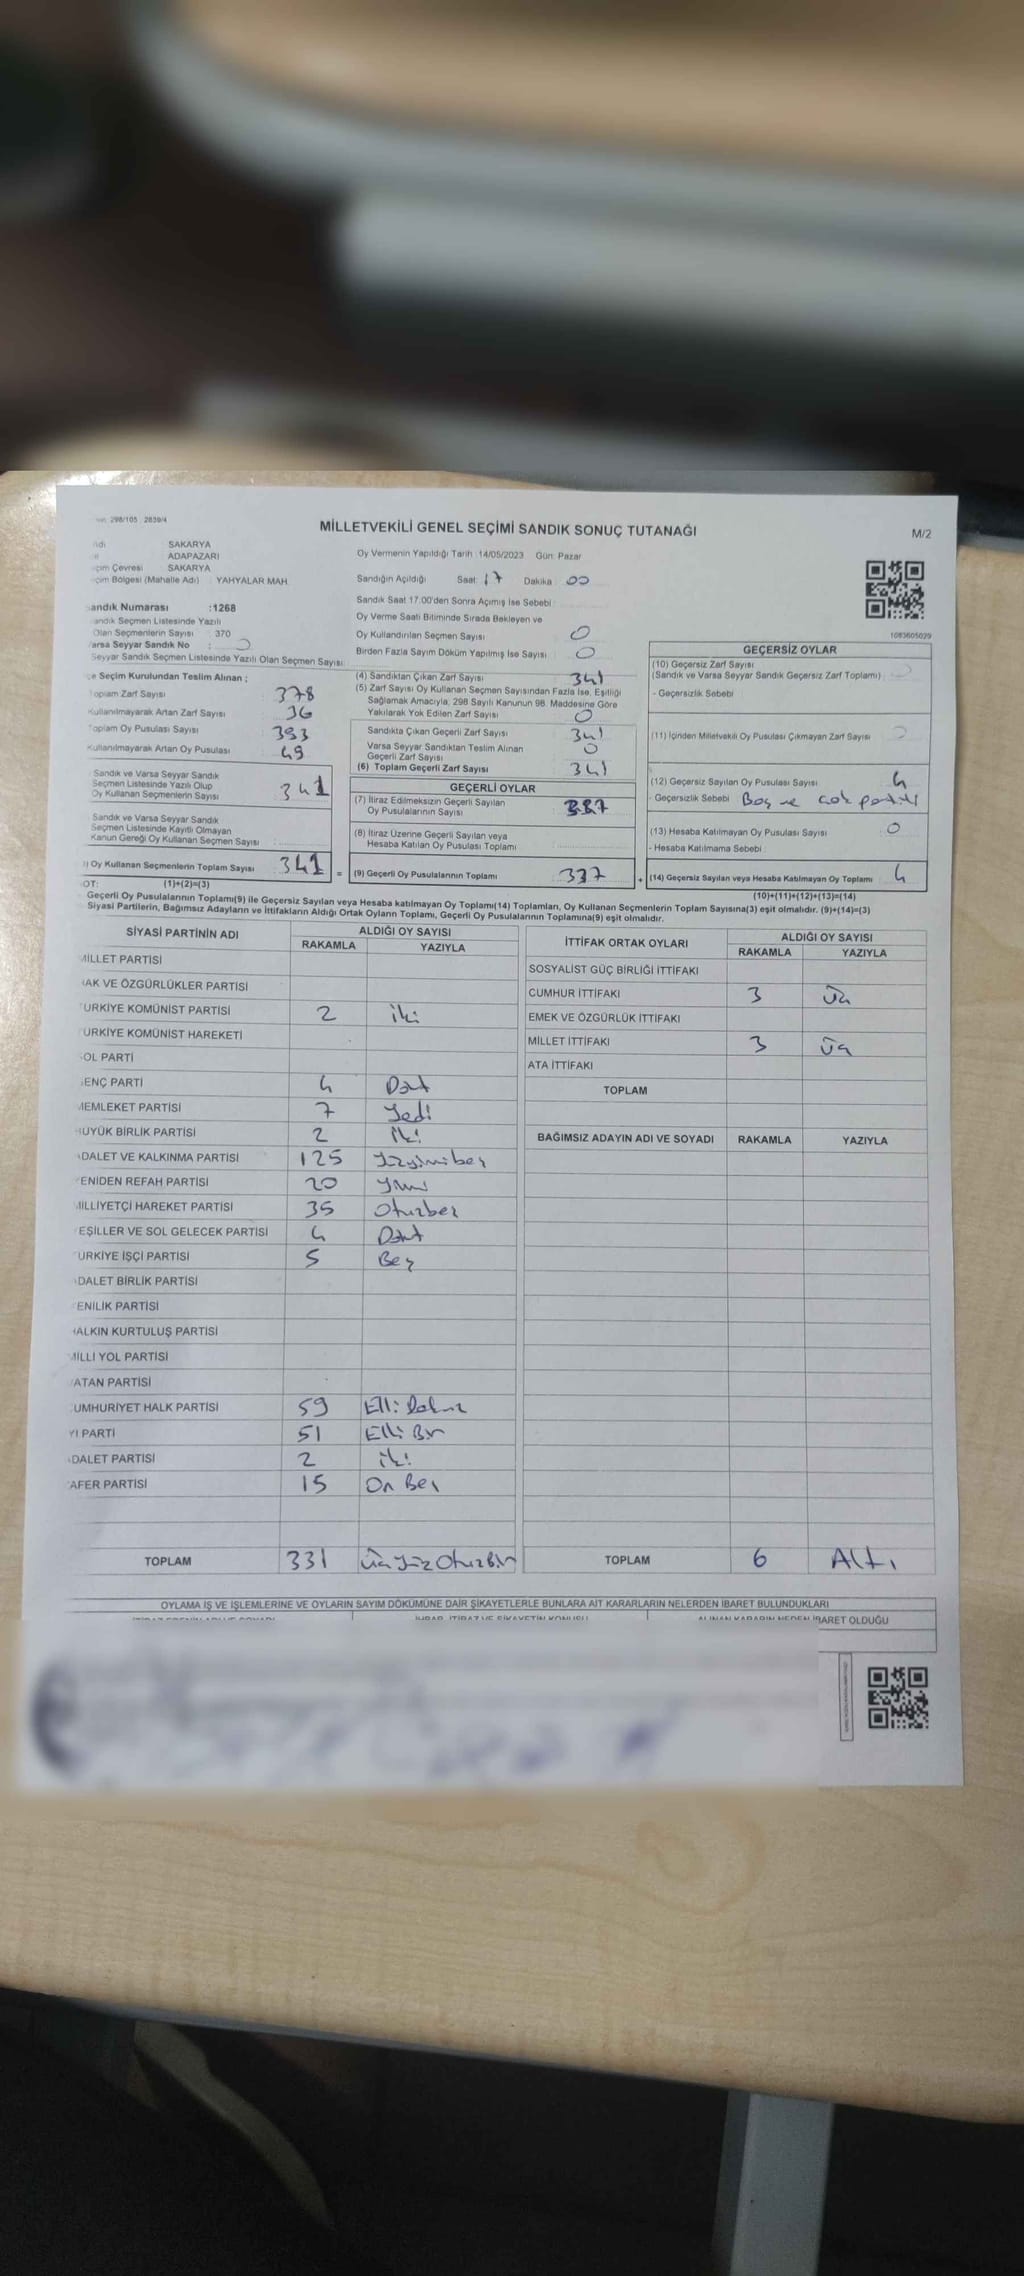 298/105 2839/4
MİLLETVEKİLİ GENEL SEÇİMİ SANDIK SONUÇ TUTANAĞI
M/2
SAKARYA
ADAPAZARI
SAKARYA
(Mahalle Adı) : YAHYALAR MAH.
Oy Vermenin Yapıldığı Tarih :14/05/2023 Gün: Pazar
Sandığın Açıldığı Saat: 17 Dakika : 00
Sandık Saat 17.00'den Sonra Açımış İse Sebebi :
Oy Verme Saati Bitiminde Sırada Bekleyen ve
Oy Kullandırılan Seçmen Sayısı 0
Birden Fazla Sayım Döküm Yapılmış İse Sayısı 0
andık Numarası :1268
andık Seçmen Listesinde Yazılı
Olan Seçmenlerin Sayısı : 370
arsa Seyyar Sandık No :
Seyyar Sandık Seçmen Listesinde Yazılı Olan Seçmen Sayısı:
1083605029
e Seçim Kurulundan Teslim Alınan ;
Toplam Zarf Sayısı 378
Kullanılmayarak Artan Zarf Sayısı 36
Toplam Oy Pusulası Sayısı 393
Kullanılmayarak Artan Oy Pusulası 49
Sandık ve Varsa Seyyar Sandık
Seçmen Listesinde Yazılı Olup
Oy Kullanan Seçmenlerin Sayısı 341
Sandık ve Varsa Seyyar Sandık
Seçmen Listesinde Kayıtlı Olmayan
Kanun Gereği Oy Kullanan Seçmen Sayısı :
) Oy Kullanan Seçmenlerin Toplam Sayısı 341 =
(4) Sandıktan Çıkan Zarf Sayısı 341
(5) Zarf Sayısı Oy Kullanan Seçmen Sayısından Fazla İse, Eşitliği
Sağlamak Amacıyla, 298 Sayılı Kanunun 98. Maddesine Göre
Yakılarak Yok Edilen Zarf Sayısı 0
Sandıkta Çıkan Geçerli Zarf Sayısı 341
Varsa Seyyar Sandıktan Teslim Alınan
Geçerli Zarf Sayısı 0
(6) Toplam Geçerli Zarf Sayısı 341
GEÇERLİ OYLAR
(7) İtiraz Edilmeksizin Geçerli Sayılan
Oy Pusulalarının Sayısı 337
(8) İtiraz Üzerine Geçerli Sayılan veya
Hesaba Katılan Oy Pusulası Toplamı
(9) Geçerli Oy Pusulalarının Toplamı 337 +
GEÇERSİZ OYLAR
(10) Geçersiz Zarf Sayısı
(Sandık ve Varsa Seyyar Sandık Geçersiz Zarf Toplamı) :
- Geçersizlik Sebebi
(11) İçinden Milletvekili Oy Pusulası Çıkmayan Zarf Sayısı
(12) Geçersiz Sayılan Oy Pusulası Sayısı 4
- Geçersizlik Sebebi Boş ve çok partili
(13) Hesaba Katılmayan Oy Pusulası Sayısı 0
- Hesaba Katılmama Sebebi
(14) Geçersiz Sayılan veya Hesaba Katılmayan Oy Toplamı 4
OT: (1)+(2)=(3)
(10)+(11)+(12)+(13)=(14)
Geçerli Oy Pusulalarının Toplamı(9) ile Geçersiz Sayılan veya Hesaba katılmayan Oy Toplamı(14) Toplamları, Oy Kullanan Seçmenlerin Toplam Sayısına(3) eşit olmalıdır. (9)+(14)=(3)
Siyasi Partilerin, Bağımsız Adayların ve İttifakların Aldığı Ortak Oyların Toplamı, Geçerli Oy Pusulalarının Toplamına(9) eşit olmalıdır.
SİYASİ PARTİNİN ADI ALDIĞI OY SAYISI
RAKAMLA YAZIYLA
MİLLET PARTİSİ
AK VE ÖZGÜRLÜKLER PARTİSİ
ÜRKİYE KOMÜNİST PARTİSİ 2 iki
ÜRKİYE KOMÜNİST HAREKETİ
OL PARTİ
ENÇ PARTİ 4 Dört
MEMLEKET PARTİSİ 7 Yedi
ÜYÜK BİRLİK PARTİSİ 2 iki
DALET VE KALKINMA PARTİSİ 125 Yüzyirmibeş
ENİDEN REFAH PARTİSİ 20 Yirmi
MİLLİYETÇİ HAREKET PARTİSİ 35 Otuzbeş
EŞİLLER VE SOL GELECEK PARTİSİ 4 Dört
ÜRKİYE İŞÇİ PARTİSİ 5 Beş
DALET BİRLİK PARTİSİ
ENİLİK PARTİSİ
ALKIN KURTULUŞ PARTİSİ
MİLLİ YOL PARTİSİ
ATAN PARTİSİ
UMHURİYET HALK PARTİSİ 59 Elli Dokuz
Yİ PARTİ 51 Elli Bir
DALET PARTİSİ 2 iki
AFER PARTİSİ 15 On Beş
TOPLAM 331 Üç Yüz Otuz Bir
İTTİFAK ORTAK OYLARI ALDIĞI OY SAYISI
RAKAMLA YAZIYLA
SOSYALİST GÜÇ BİRLİĞİ İTTİFAKI
CUMHUR İTTİFAKI 3 üç
EMEK VE ÖZGÜRLÜK İTTİFAKI
MİLLET İTTİFAKI 3 üç
ATA İTTİFAKI
TOPLAM
BAĞIMSIZ ADAYIN ADI VE SOYADI RAKAMLA YAZIYLA
TOPLAM 6 Altı
OYLAMA İŞ VE İŞLEMLERİNE VE OYLARIN SAYIM DÖKÜMÜNE DAİR ŞİKAYETLERLE BUNLARA AİT KARARLARIN NELERDEN İBARET BULUNDUKLARI
İHBAR, İTİRAZ VE ŞİKAYETİN KONUSU
ALINAN KARARIN NEDEN İBARET OLDUĞU